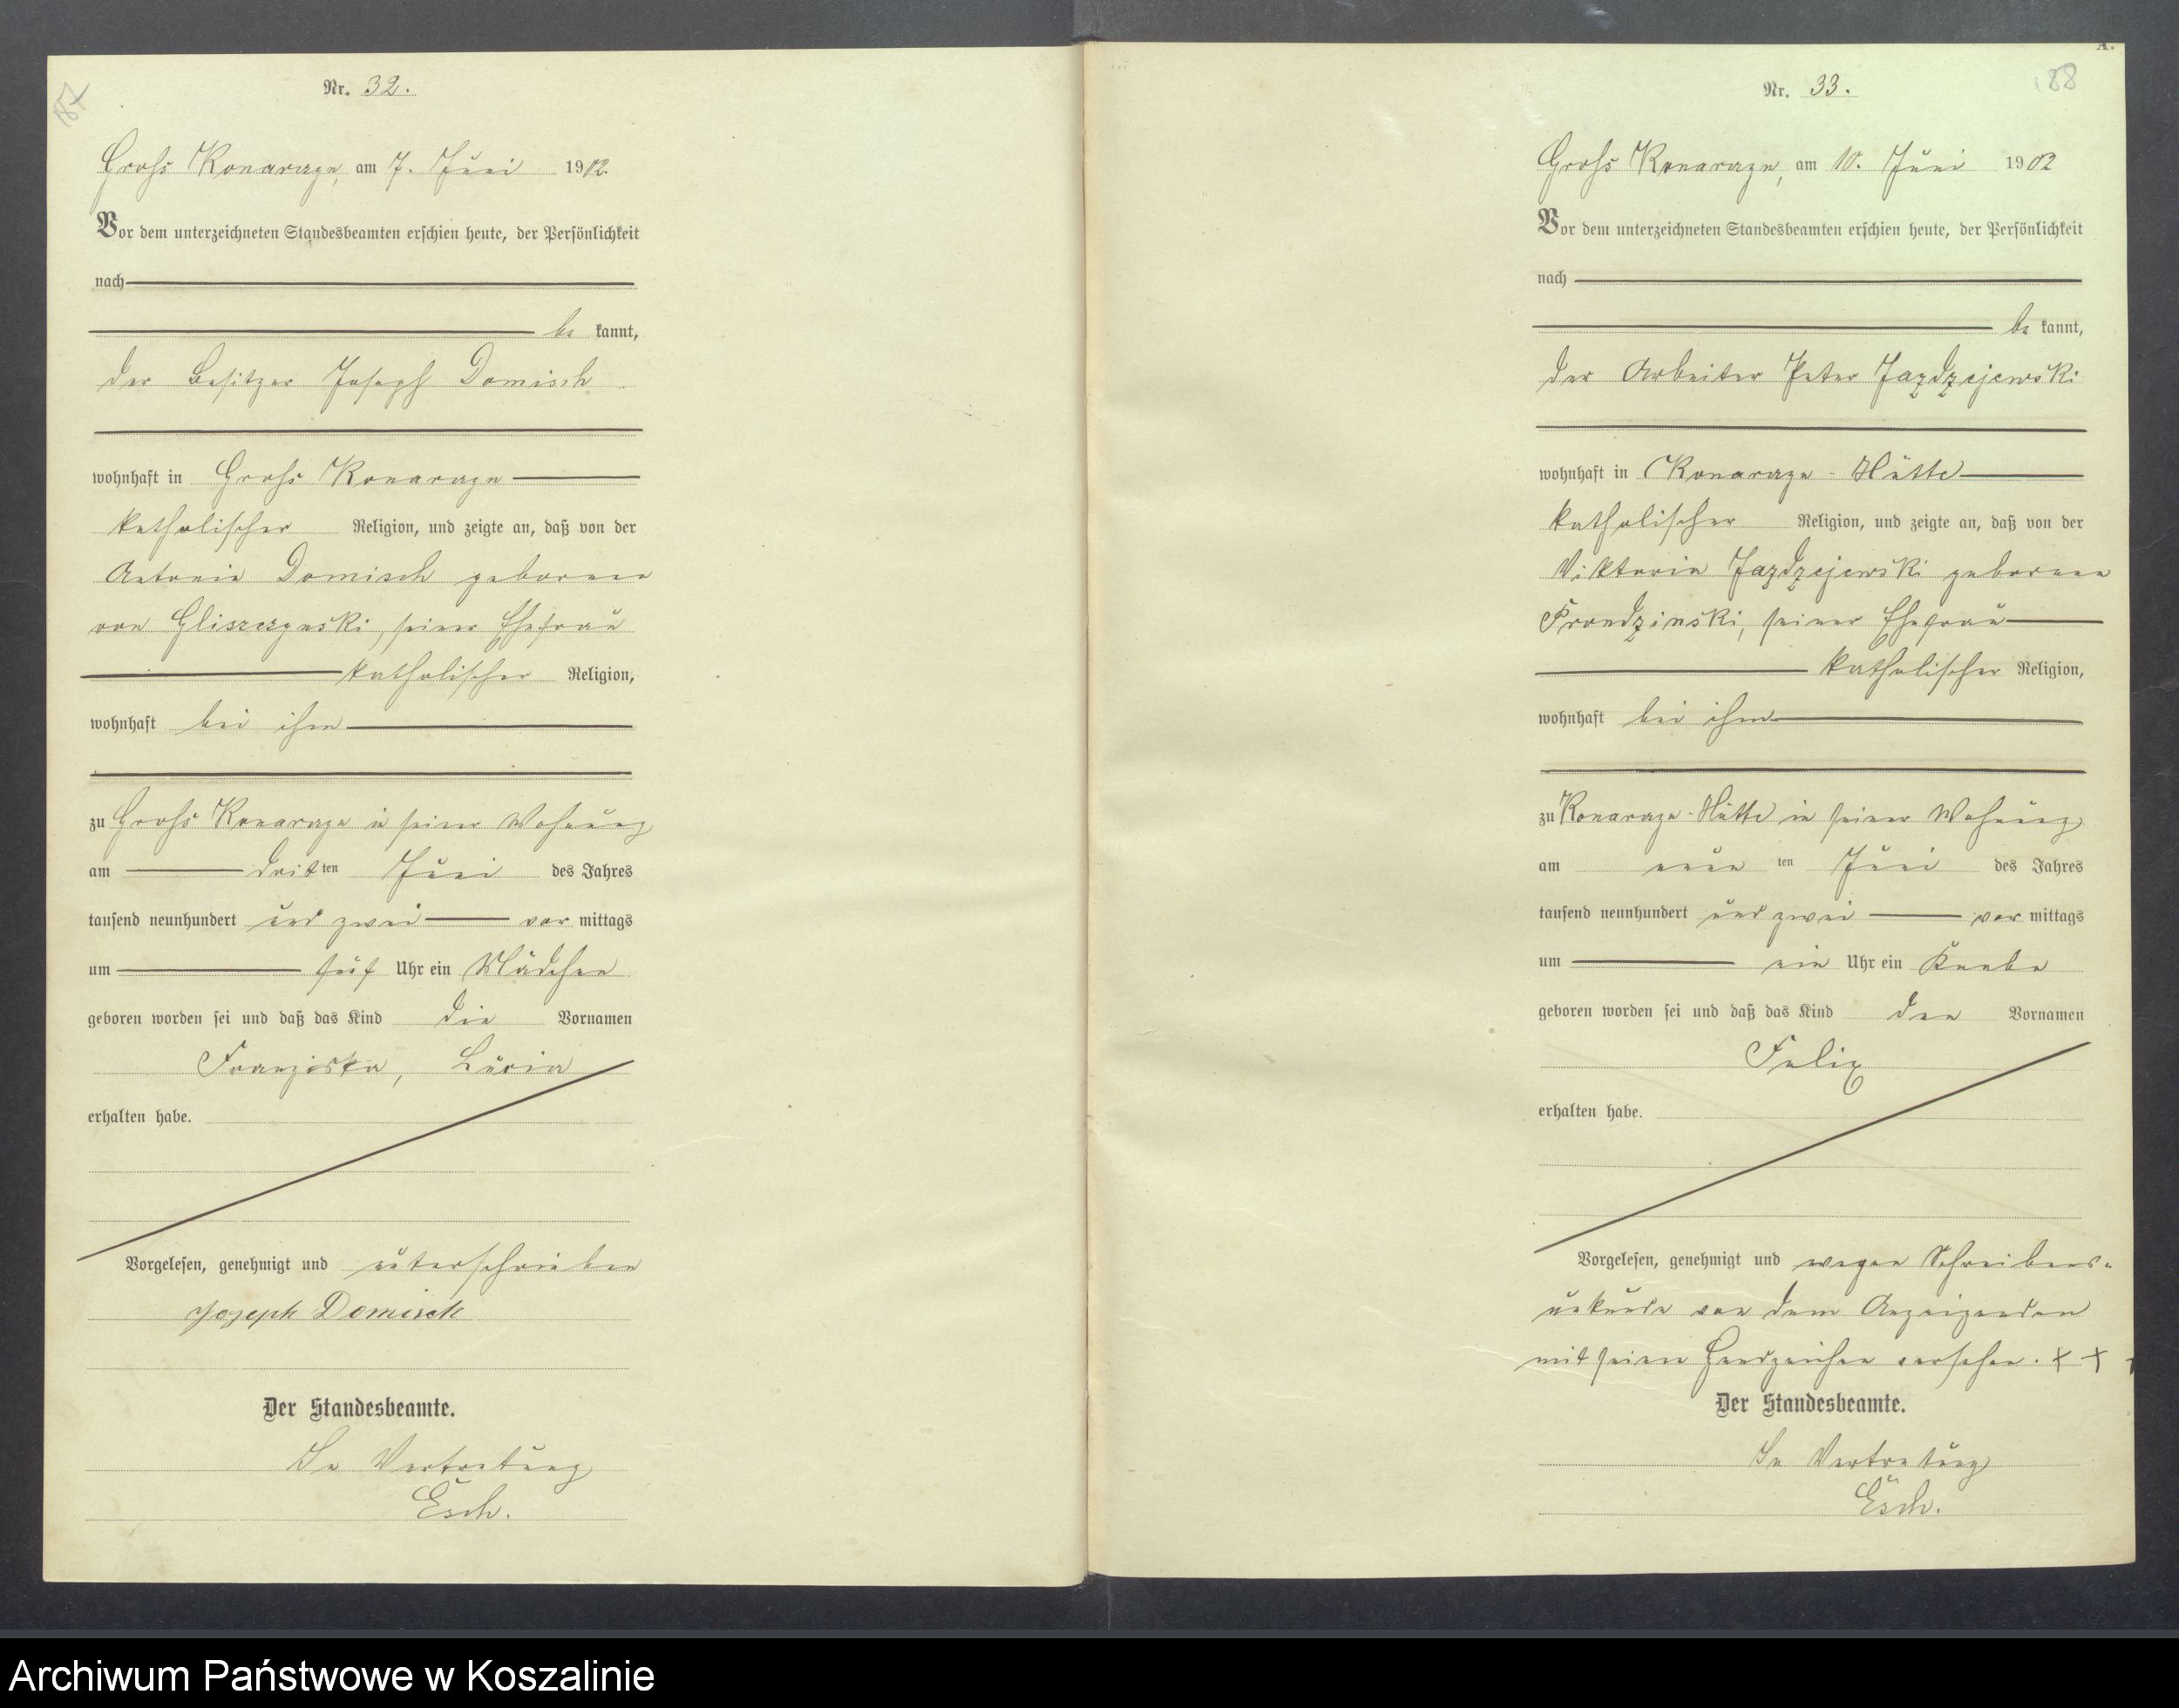 187
Nr. 32.
Groß Konarczyn, am 7. Juni 1902.
Vor dem unterzeichneten Standesbeamten erschien heute, der Persönlichkeit
nach
be kannt,
der Besitzer Joseph Domisch
wohnhaft in Groß Konarczyn
katholischer Religion, und zeigte an, daß von der
Antonie Domisch geborenen
von Gliszczynski, seiner Ehefrau
katholischer Religion,
wohnhaft bei ihm
zu Groß Konarczyn in seiner Wohnung
am dritten Juni des Jahres
tausend neunhundert und zwei vor mittags
um fünf Uhr ein Mädchen
geboren worden sei und daß das Kind die Vornamen
Franziska,
erhalten habe.
Vorgelesen, genehmigt und unterschrieben
Joseph Domisch
Der Standesbeamte.
In Vertretung
Esch.
A.
188
Nr. 33.
Groß Konarczyn, am 10. Juni 1902
Vor dem unterzeichneten Standesbeamten erschien heute, der Persönlichkeit
nach
be kannt,
der Arbeiter Peter Jazdzejewski
wohnhaft in Konarczyn-Hütte
katholischer Religion, und zeigte an, daß von der
Viktoria Jazdzejewski geborenen
Prondzinski, seiner Ehefrau
katholischer Religion,
wohnhaft bei ihm
zu Konarczyn-Hütte in seiner Wohnung
am neunten Juni des Jahres
tausend neunhundert und zwei vor mittags
um ein Uhr ein Knabe
geboren worden sei und daß das Kind den Vornamen
Felix
erhalten habe.
Vorgelesen, genehmigt und wegen Schreibens-
unkunde von dem Anzeigenden
mit seinem Handzeichen versehen. + + +
Der Standesbeamte.
In Vertretung
Esch.
Archiwum Państwowe w Koszalinie